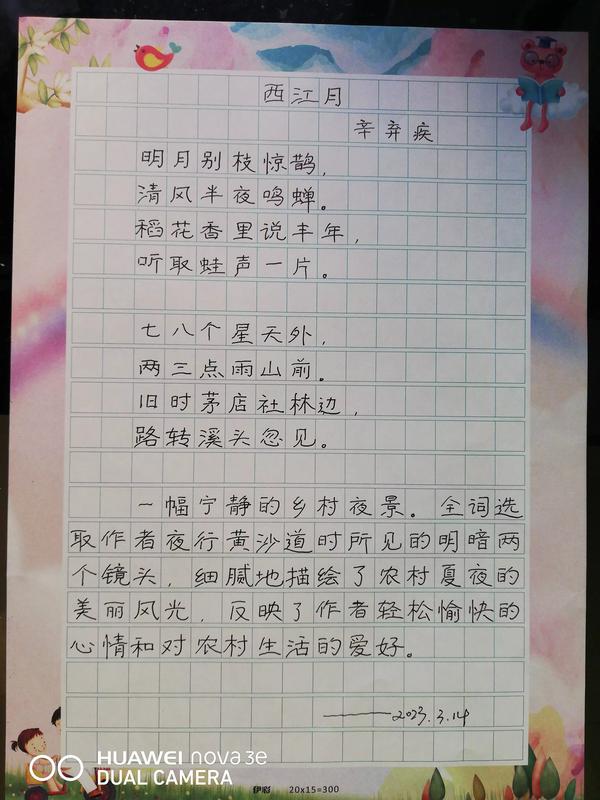 西江月
辛弃疾
明月别枝惊鹊，
清风半夜鸣蝉。
稻花香里说丰年，
听取蛙声一片。
七八个星天外，
两三点雨山前。
旧时茅店社林边，
路转溪头忽见。
一幅宁静的乡村夜景。全词选
取作者夜行黄沙道时所见的明暗两
个镜头，细腻地描绘了农村夏夜的
美丽风光，反映了作者轻松愉快的
心情和对农村生活的爱好。
——2023.3.14
HUAWEI nova 3e
DUAL CAMERA
伊彩 20x15=300